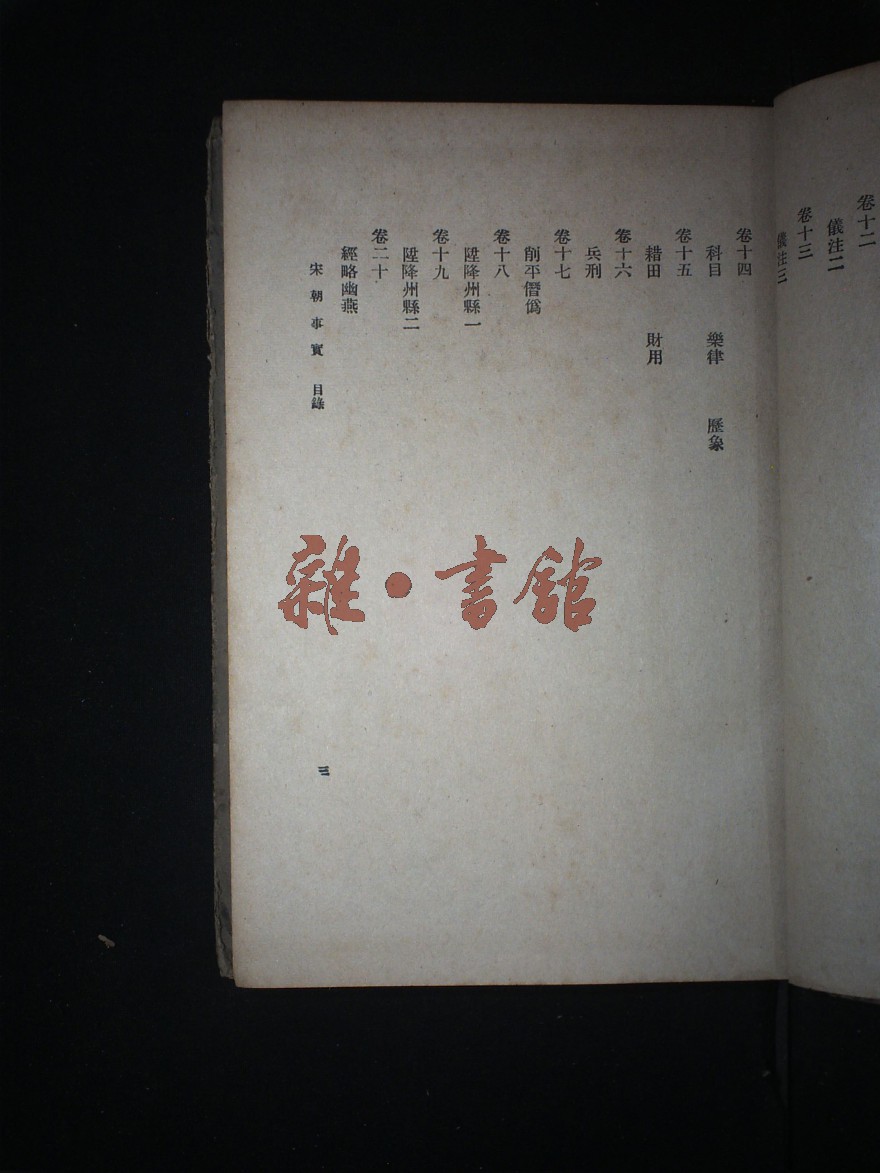 卷十二
儀注二
卷十三
儀注三
卷十四
科目 樂律 歷象
卷十五
耤田 財用
卷十六
兵刑
卷十七
削平僭偽
卷十八
陞降州縣一
卷十九
陞降州縣二
卷二十
經略幽燕
宋朝事實 目錄
三
雜·書館